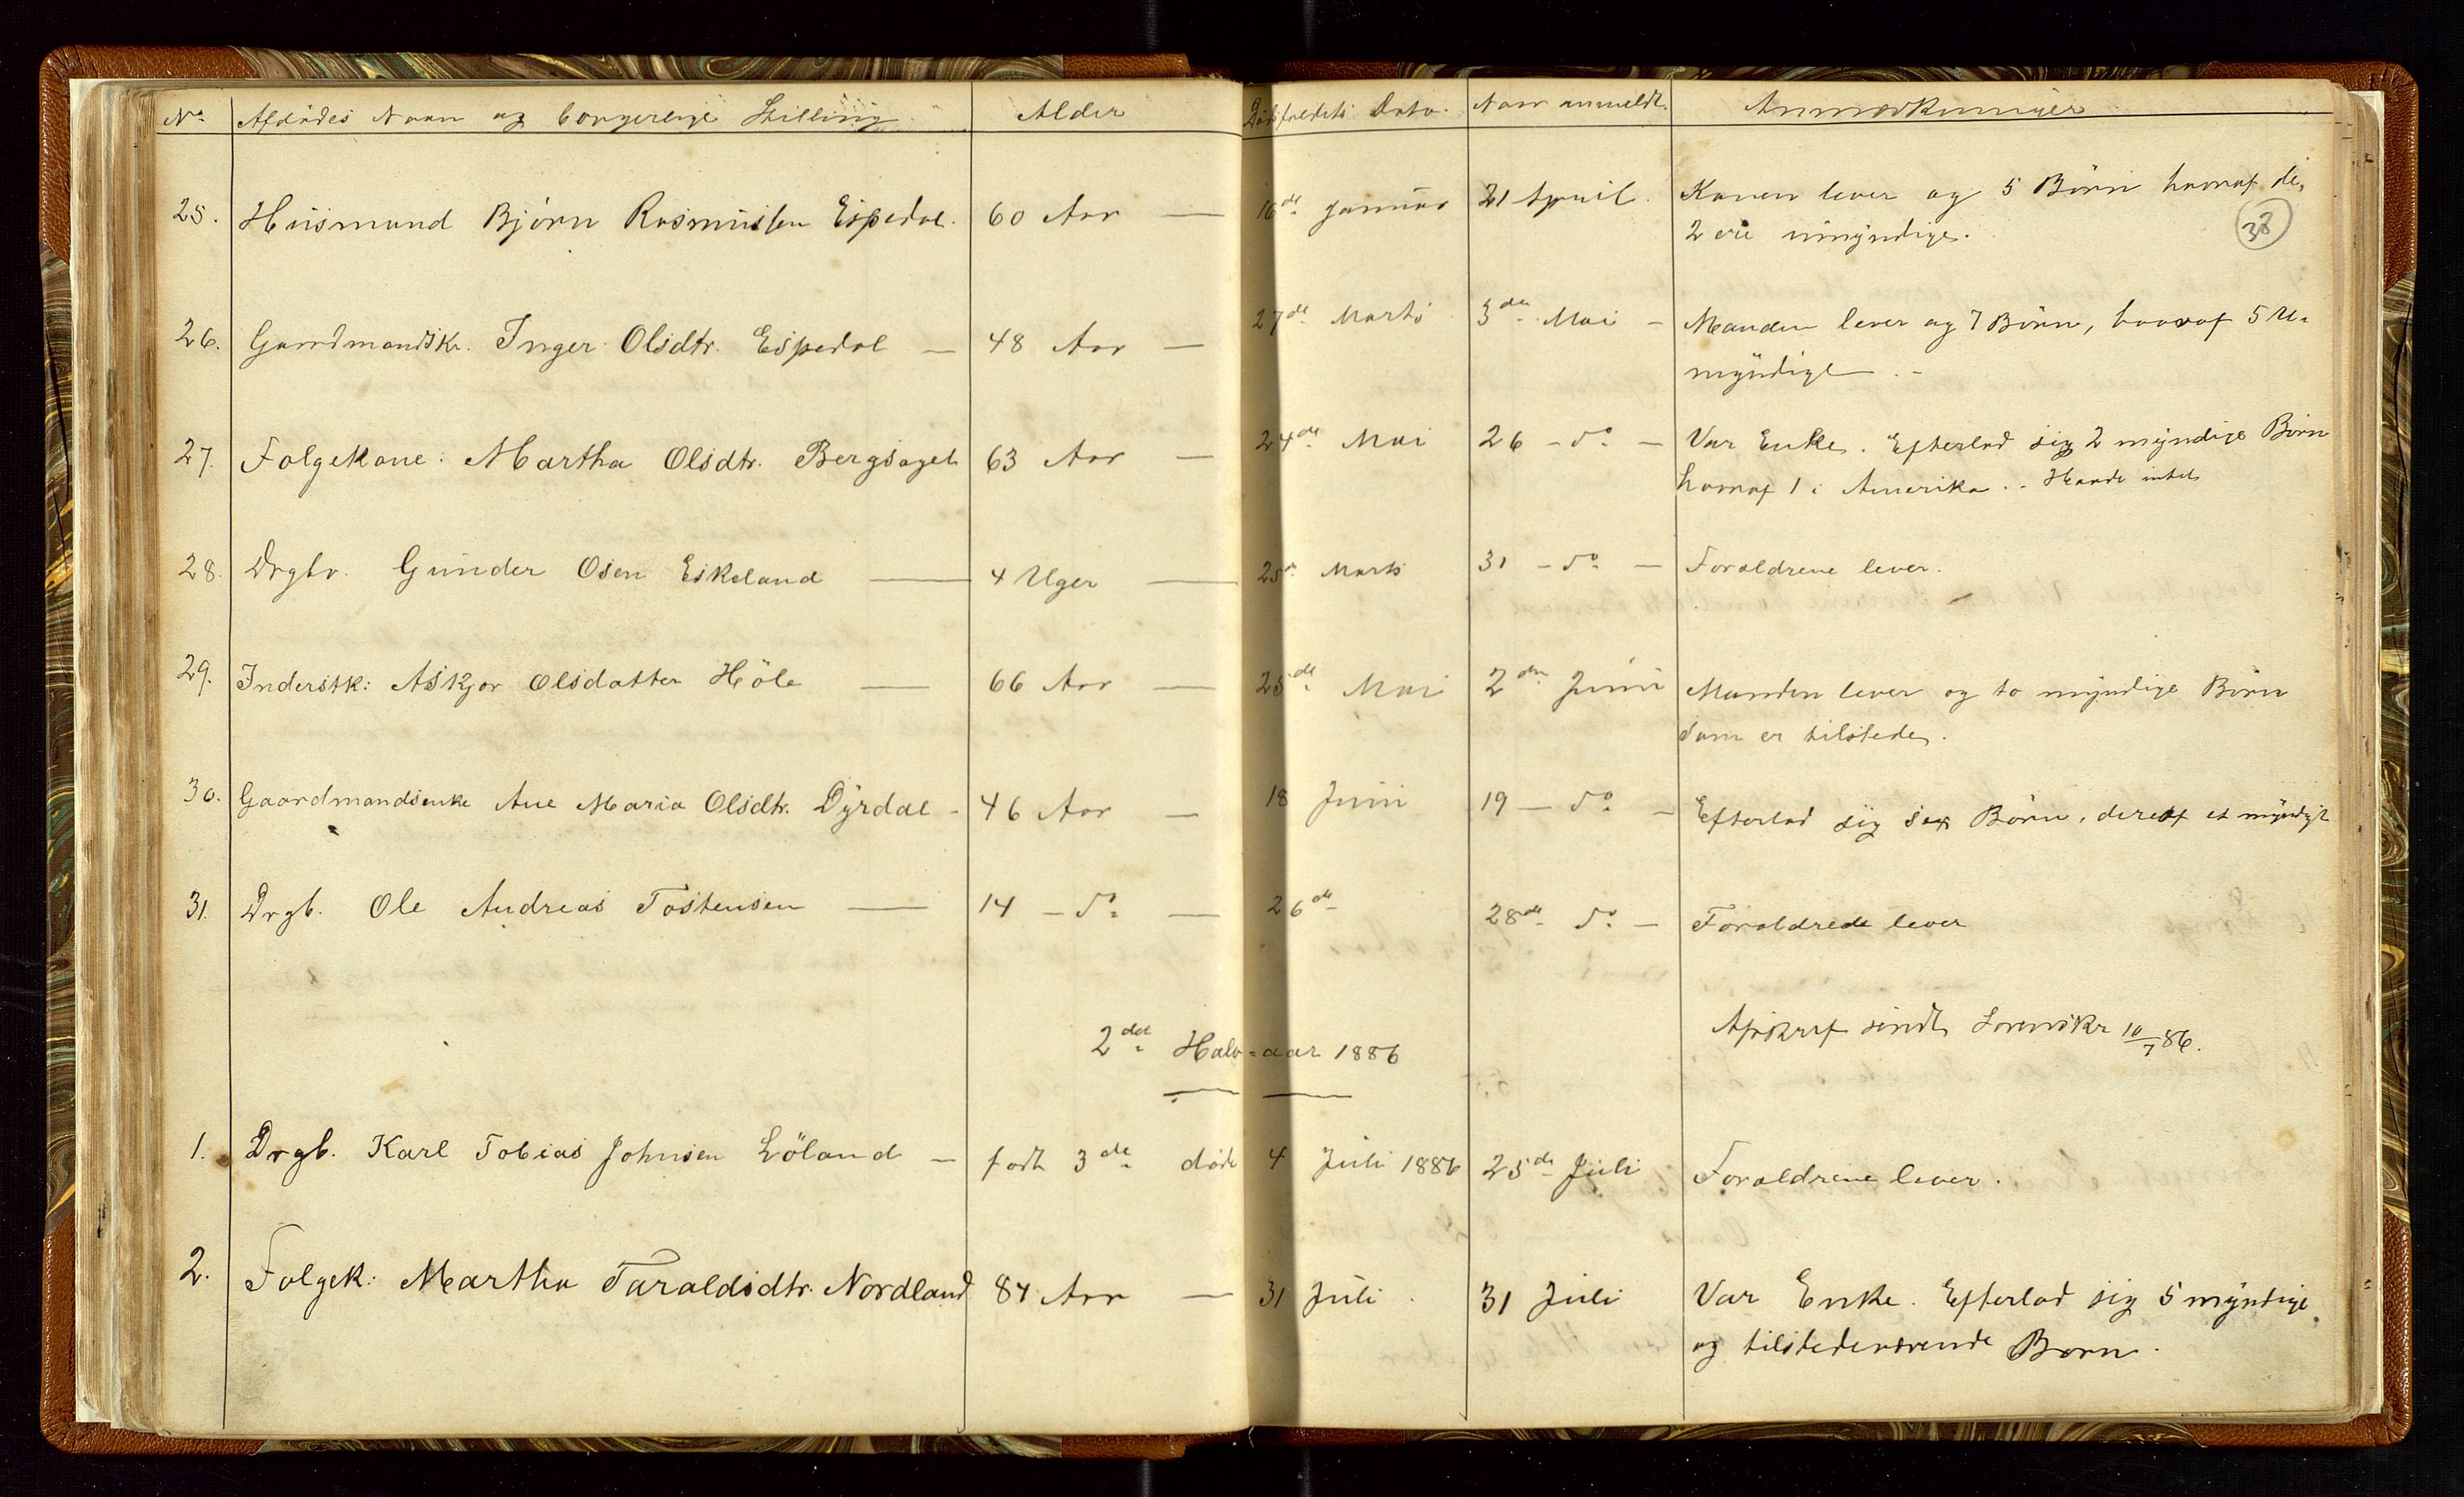 No. Afdødes Navn og borgerlige Stilling. Alder Dødsfaldets Dato. Naar anmeldt. Anmærkninger
25. Husmand Bjørn Rasmussen Espedal. 60 Aar — 16de Januar 21 April. Konen lever og 5 Børn hvoraf de,
2 ere umyndige.
38
26. Gaardmandsk. Inger Olsdtr. Espedal — 48 Aar — 27de Marts 3die Mai — Manden lever og 7 Børn, hvoraf 5 u-
myndige . -
27. Folgekone: Martha Olsdtr. Bergsagel 63 Aar — 24de Mai 26 - do - — Var Enke. Efterlod sig 2 myndige Børn
hvoraf 1 i Amerika. - Havde intet
28. Drgbr. Gunder Osen Eskeland — 4 Uger — 25de Marts 31 - do - — Foraldrene lever.
29. Inderstk: Askjær Olsdatter Høle — 66 Aar — 25de Mai 2den Juni Manden lever og to myndige Børn
som er tilstede.
30. Gaardmandsenke Ane Maria Olsdtr. Dyrdal - 46 Aar — 18 Juni 19 — do — Efterlod sig sex Børn, deraf et myndigt
31. Drgb. Ole Andreas Tostensen — 14 - do — 26de 28de do — Foraldrede lever
Afskrift sendt Sorenskr 10/7 86.
2det Halv-aar 1886
1. Drgb. Karl Tobias Johnsen Løland — født 3de død 4 Juli 1886 25de Juli Foraldrene lever.
2. Folgek: Martha Taraldsdtr. Nordland 84 Aar — 31 Juli . 31 Juli Var Enke. Efterlod sig 5 myndige
og tilstedeværende Børn.